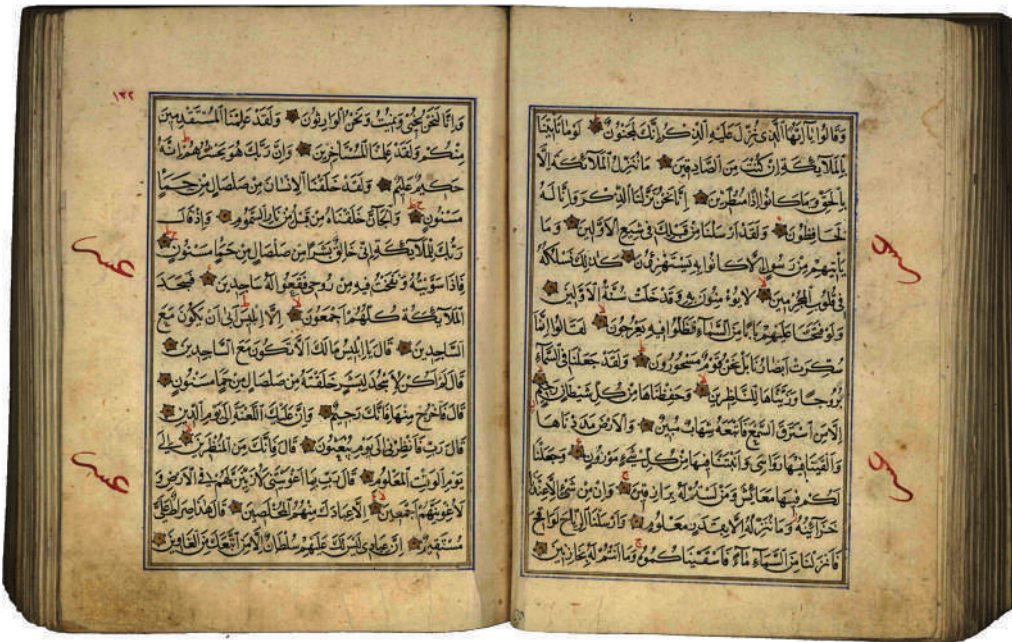 وَقَالُوا يَا أَيُّهَا الَّذِي نُزِّلَ عَلَيْهِ الذِّكْرُ إِنَّكَ لَمَجْنُونٌ لَوْ مَا تَأْتِينَا
بِالْمَلَائِكَةِ إِنْ كُنْتَ مِنَ الصَّادِقِينَ مَا نُنَزِّلُ الْمَلَائِكَةَ إِلَّا
بِالْحَقِّ وَمَا كَانُوا إِذًا مُنْظَرِينَ إِنَّا نَحْنُ نَزَّلْنَا الذِّكْرَ وَإِنَّا لَهُ
لَحَافِظُونَ وَلَقَدْ أَرْسَلْنَا مِنْ قَبْلِكَ فِي شِيَعِ الْأَوَّلِينَ وَمَا
يَأْتِيهِمْ مِنْ رَسُولٍ إِلَّا كَانُوا بِهِ يَسْتَهْزِئُونَ كَذَلِكَ نَسْلُكُهُ
فِي قُلُوبِ الْمُجْرِمِينَ لَا يُؤْمِنُونَ بِهِ وَقَدْ خَلَتْ سُنَّةُ الْأَوَّلِينَ
وَلَوْ فَتَحْنَا عَلَيْهِمْ بَابًا مِنَ السَّمَاءِ فَظَلُّوا فِيهِ يَعْرُجُونَ لَقَالُوا إِنَّمَا
سُكِّرَتْ أَبْصَارُنَا بَلْ نَحْنُ قَوْمٌ مَسْحُورُونَ وَلَقَدْ جَعَلْنَا فِي السَّمَاءِ
بُرُوجًا وَزَيَّنَّاهَا لِلنَّاظِرِينَ وَحَفِظْنَاهَا مِنْ كُلِّ شَيْطَانٍ رَجِيمٍ
إِلَّا مَنِ اسْتَرَقَ السَّمْعَ فَأَتْبَعَهُ شِهَابٌ مُبِينٌ وَالْأَرْضَ مَدَدْنَاهَا
وَأَلْقَيْنَا فِيهَا رَوَاسِيَ وَأَنْبَتْنَا فِيهَا مِنْ كُلِّ شَيْءٍ مَوْزُونٍ وَجَعَلْنَا
لَكُمْ فِيهَا مَعَايِشَ وَمَنْ لَسْتُمْ لَهُ بِرَازِقِينَ وَإِنْ مِنْ شَيْءٍ إِلَّا عِنْدَنَا
خَزَائِنُهُ وَمَا نُنَزِّلُهُ إِلَّا بِقَدَرٍ مَعْلُومٍ وَأَرْسَلْنَا الرِّيَاحَ لَوَاقِحَ
فَأَنْزَلْنَا مِنَ السَّمَاءِ مَاءً فَأَسْقَيْنَاكُمُوهُ وَمَا أَنْتُمْ لَهُ بِخَازِنِينَ
١٣٢
وَإِنَّا لَنَحْنُ نُحْيِي وَنُمِيتُ وَنَحْنُ الْوَارِثُونَ وَلَقَدْ عَلِمْنَا الْمُسْتَقْدِمِينَ
مِنْكُمْ وَلَقَدْ عَلِمْنَا الْمُسْتَأْخِرِينَ وَإِنَّ رَبَّكَ هُوَ يَحْشُرُهُمْ إِنَّهُ
حَكِيمٌ عَلِيمٌ وَلَقَدْ خَلَقْنَا الْإِنْسَانَ مِنْ صَلْصَالٍ مِنْ حَمَإٍ
مَسْنُونٍ وَالْجَانَّ خَلَقْنَاهُ مِنْ قَبْلُ مِنْ نَارِ السَّمُومِ وَإِذْ قَالَ
رَبُّكَ لِلْمَلَائِكَةِ إِنِّي خَالِقٌ بَشَرًا مِنْ صَلْصَالٍ مِنْ حَمَإٍ مَسْنُونٍ
فَإِذَا سَوَّيْتُهُ وَنَفَخْتُ فِيهِ مِنْ رُوحِي فَقَعُوا لَهُ سَاجِدِينَ فَسَجَدَ
الْمَلَائِكَةُ كُلُّهُمْ أَجْمَعُونَ إِلَّا إِبْلِيسَ أَبَى أَنْ يَكُونَ مَعَ
السَّاجِدِينَ قَالَ يَا إِبْلِيسُ مَا لَكَ أَلَّا تَكُونَ مَعَ السَّاجِدِينَ
قَالَ لَمْ أَكُنْ لِأَسْجُدَ لِبَشَرٍ خَلَقْتَهُ مِنْ صَلْصَالٍ مِنْ حَمَإٍ مَسْنُونٍ
قَالَ فَاخْرُجْ مِنْهَا فَإِنَّكَ رَجِيمٌ وَإِنَّ عَلَيْكَ اللَّعْنَةَ إِلَى يَوْمِ الدِّينِ
قَالَ رَبِّ فَأَنْظِرْنِي إِلَى يَوْمِ يُبْعَثُونَ قَالَ فَإِنَّكَ مِنَ الْمُنْظَرِينَ إِلَى
يَوْمِ الْوَقْتِ الْمَعْلُومِ قَالَ رَبِّ بِمَا أَغْوَيْتَنِي لَأُزَيِّنَنَّ لَهُمْ فِي الْأَرْضِ وَ
لَأُغْوِيَنَّهُمْ أَجْمَعِينَ إِلَّا عِبَادَكَ مِنْهُمُ الْمُخْلَصِينَ قَالَ هَذَا صِرَاطٌ عَلَيَّ
مُسْتَقِيمٌ إِنَّ عِبَادِي لَيْسَ لَكَ عَلَيْهِمْ سُلْطَانٌ إِلَّا مَنِ اتَّبَعَكَ مِنَ الْغَاوِينَ